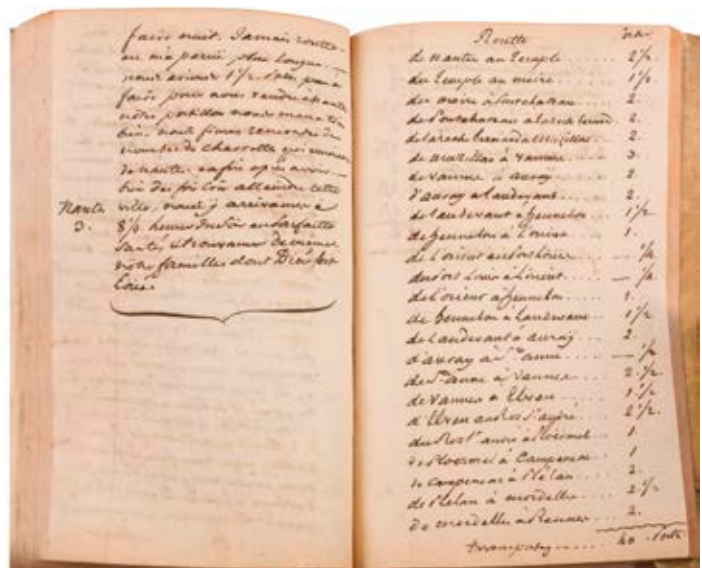 faire nuit. Jamais routte
ne m'a parue plus longue.
nous avions 1 1/2.
faire pour nous rendre à nante
notre postillon nous mena très
bien. nous fimes rencontre de
nombre de charrettes qui venoient
de nante. enfin après avoir
bien des fois cru atteindre cette
Nante
3.
ville, nous y arrivames à
8 1/2 heures du soir en parfaitte
santé, et trouvames de même
notre familles dont Dieu soit
loué.
Routte
de nantes au temple ...... 2 1/2
du temple au moire ...... 1 1/2
du moire à Pontchateau ...... 2.
de Pontchateau a la roche bernard. 2.
de la roche bernard à Muzillac ... 2.
de muzillac à vannes ... 3.
de vannes à auray ... 2.
d'auray a landevant ... 2.
de landevant à hennebon ... 1 1/2
de hennebon à L'orient ... 1.
de L'orient au Port Louis ... —
du Port Louis à l'orient ... —
de l'orient à hennebon ... 1.
de hennebon à landevant ... 1 1/2
de Landevant à auray ... 2.
d'auray à Ste anne ... — 1/2
de Ste anne à Vannes ... 2 1/2
de Vannes à Elven ... 1 1/2
d'Elven au Roc St andré ... 2 1/2.
du Roc St andré à Ploermel ... 1.
de Ploermel à Campeneac ... 1
de campeneac à Plélan ... 2.
de Plélan à mordelles ... 2 1/2
de mordelles à Rennes ... 2.
40